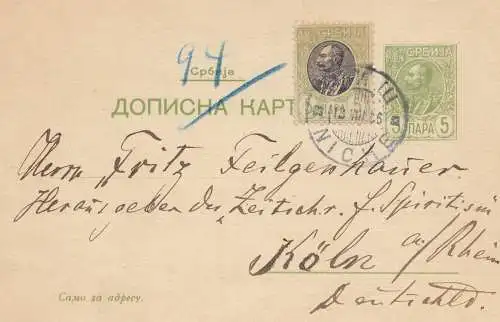 94
Србија
ДОПИСНА КАРТ
СРБИЈА
5 ПАРА 5
Herrn "Fritz Feilgenhauer.
Herausgeber der "Zeitschr. f. Spiritism
Köln a/Rhein
Deutschld.
Само за адресу.